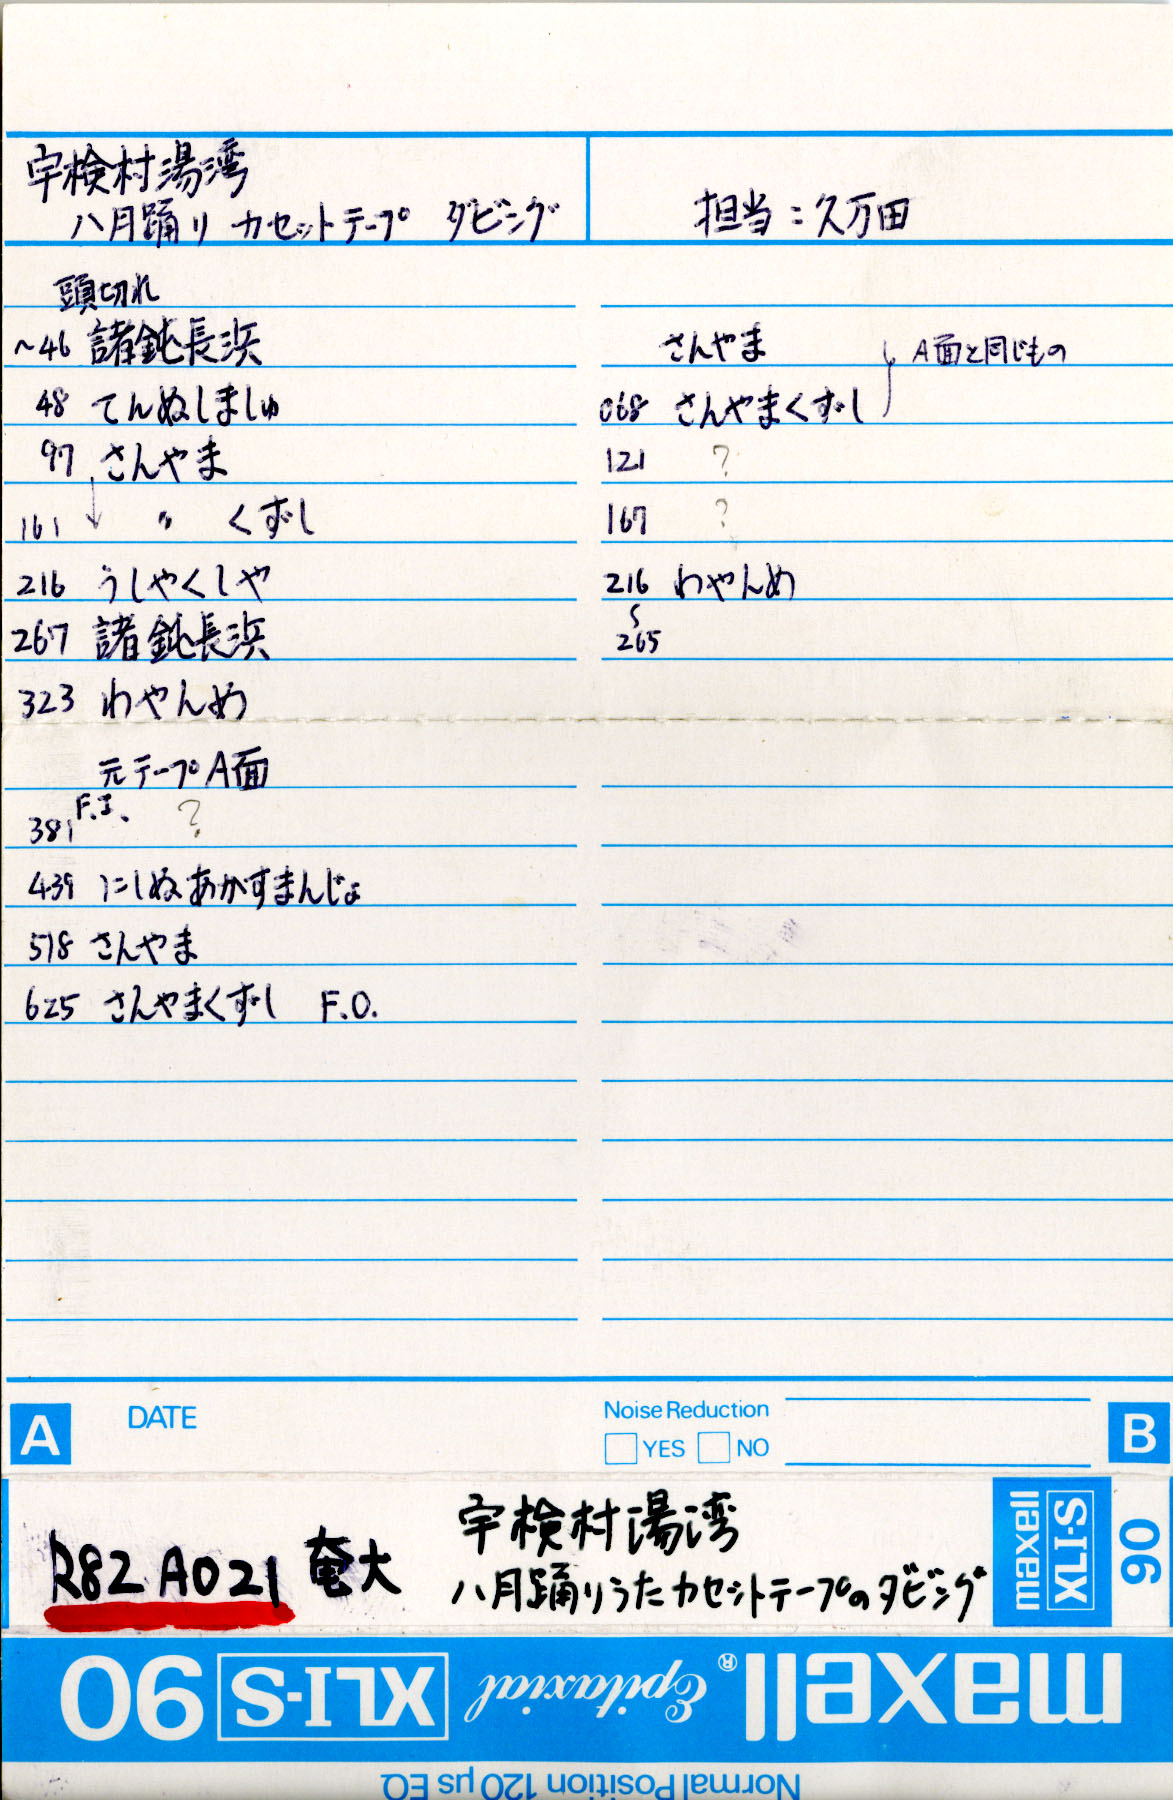 宇検村湯湾
八月踊り カセットテープ ダビング
担当：久万田
頭切れ
~46 諸鈍長浜
48 てんぬしましゅ
97 さんやま
161 〃 くずし
216 うしやくしや
267 諸鈍長浜
323 わやんめ
元テープA面
381 F.I. ?
439 にしぬあかすまんじょ
518 さんやま
625 さんやまくずし F.O.
さんやま
A面と同じもの
068 さんやまくずし
121 ?
167 ?
216 わやんめ
〜
265
A DATE
Noise Reduction
YES NO
B
R82 A021 奄大
宇検村湯湾
八月踊りうたカセットテープのダビング
maxell
XLI-S
90
maxell® Epitaxial XLI-S 90
Normal Position 120 µs EQ